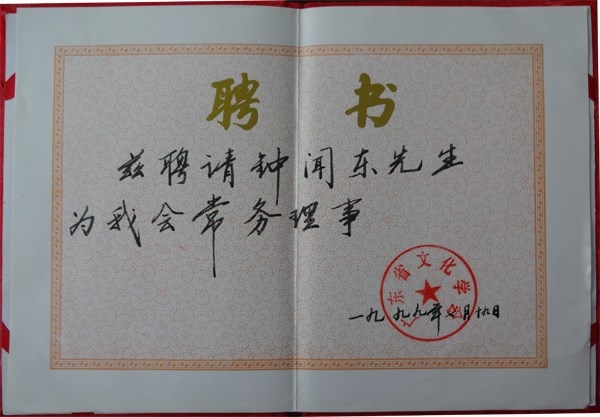 聘书
兹聘请钟闻东先生
为我会常务理事
广东省文化学会
一九九九年 月十九日